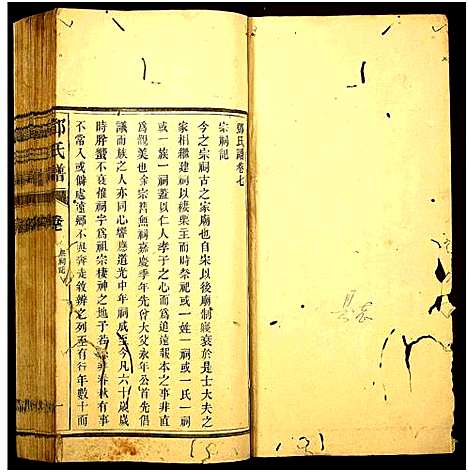 鄧氏譜卷七
宗祠記
今之宗祠古之家廟也自宋以後廟制寢衰於是士大夫之
家相繼建祠以棲栗主而時祭祀或一姓一祠或一氏一祠
或一族一祠蓋以仁人孝子之心而為追遠報本之事非直
為觀美也余宗舊無祠嘉慶季年先曾大父永年公首先倡
議而族之人亦同心響應道光中年祠成至今凡六十歲歲
時肸蠁不衰惟祠宇為祖宗棲神之地予若 非春秋有事
不常入或僻處遠鄉不與奔走效辨之列至有行年數十而
氏譜
卷